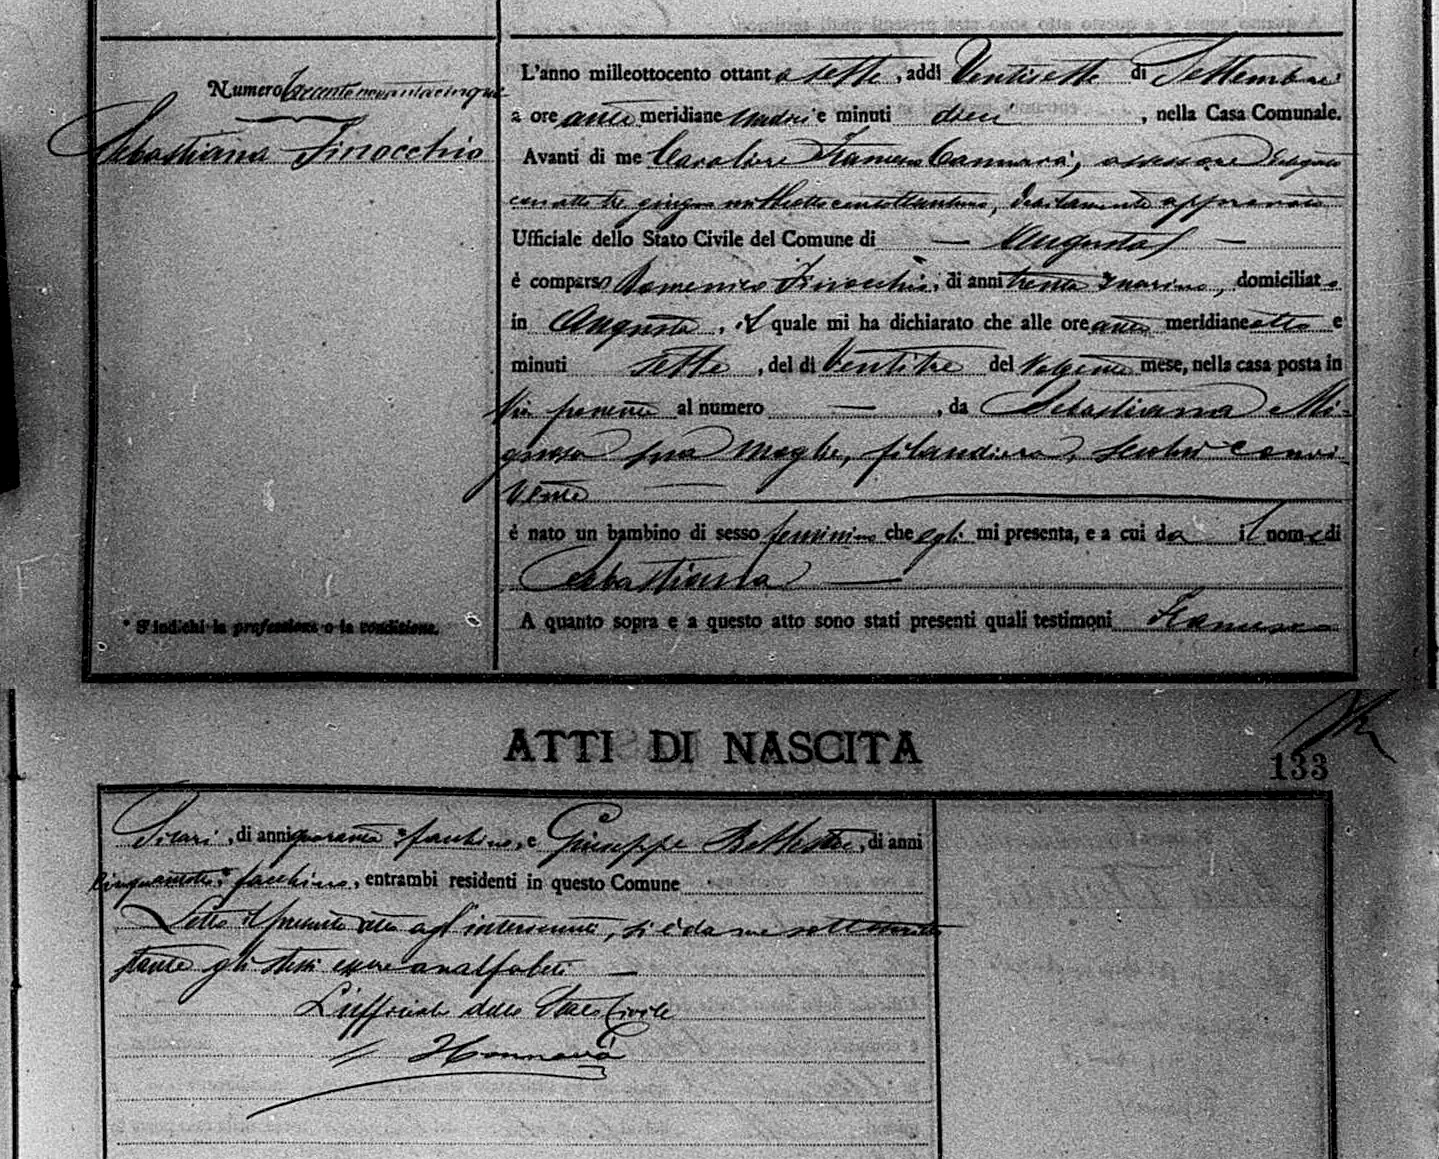 Numero trecentonovantacinque
Sebastiana Finocchio
L'anno milleottocento ottantasette, addì Ventisette di Settembre,
a ore anti meridiane undici e minuti dieci, nella Casa Comunale.
Avanti di me Cavaliere Francesco Cannavà, assessore delegato
con atto tre giugno milleottocento, debitamente approvato
Ufficiale dello Stato Civile del Comune di — Augusta —
è comparso Domenico Finocchio, di anni trenta marino, domiciliato
in Augusta, il quale mi ha dichiarato che alle ore anti meridiane otto e
minuti sette, del dì Ventitre del Volgente mese, nella casa posta in
Via ponente al numero —, da Sebastiana Mi-
gnosa sua moglie, filandiera, seco lui convi-
vente —
è nato un bambino di sesso femminino che egli mi presenta, e a cui da il nome di
Sebastiana —
A quanto sopra e a questo atto sono stati presenti quali testimoni Francesco
* S'indichi la professione o la condizione.
ATTI DI NASCITA
133
Sicari, di anni quaranta facchino, e Giuseppe, di anni
facchino, entrambi residenti in questo Comune
Letto il presente atto agl'intervenuti, si è da me sottoscritto
stante gli stessi essere analfabeti —
L'uffiziale dello Stato Civile
F. Cannavà